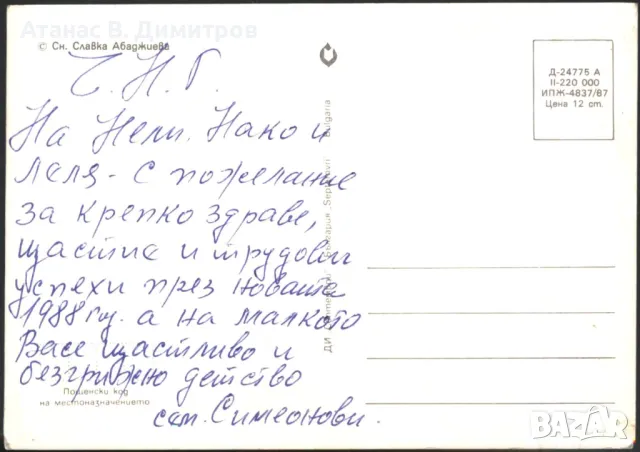 Атанас В. Димитров
© Сн. Славка Абаджиева
Ч. Н. Г.
На Нели, Нако и
Леля - с пожелание
за крепко здраве,
щастие и трудови
успехи през новата
1988 год. а на малкото
Васе щастливо и
безгрижно детство
сем. Симеонови.
Пощенски код
на местоназначението
ДИ България „Септември" Bulgaria
Д-24775 А
II-220 000
ИПЖ-4837/87
Цена 12 ст.
BAZAR